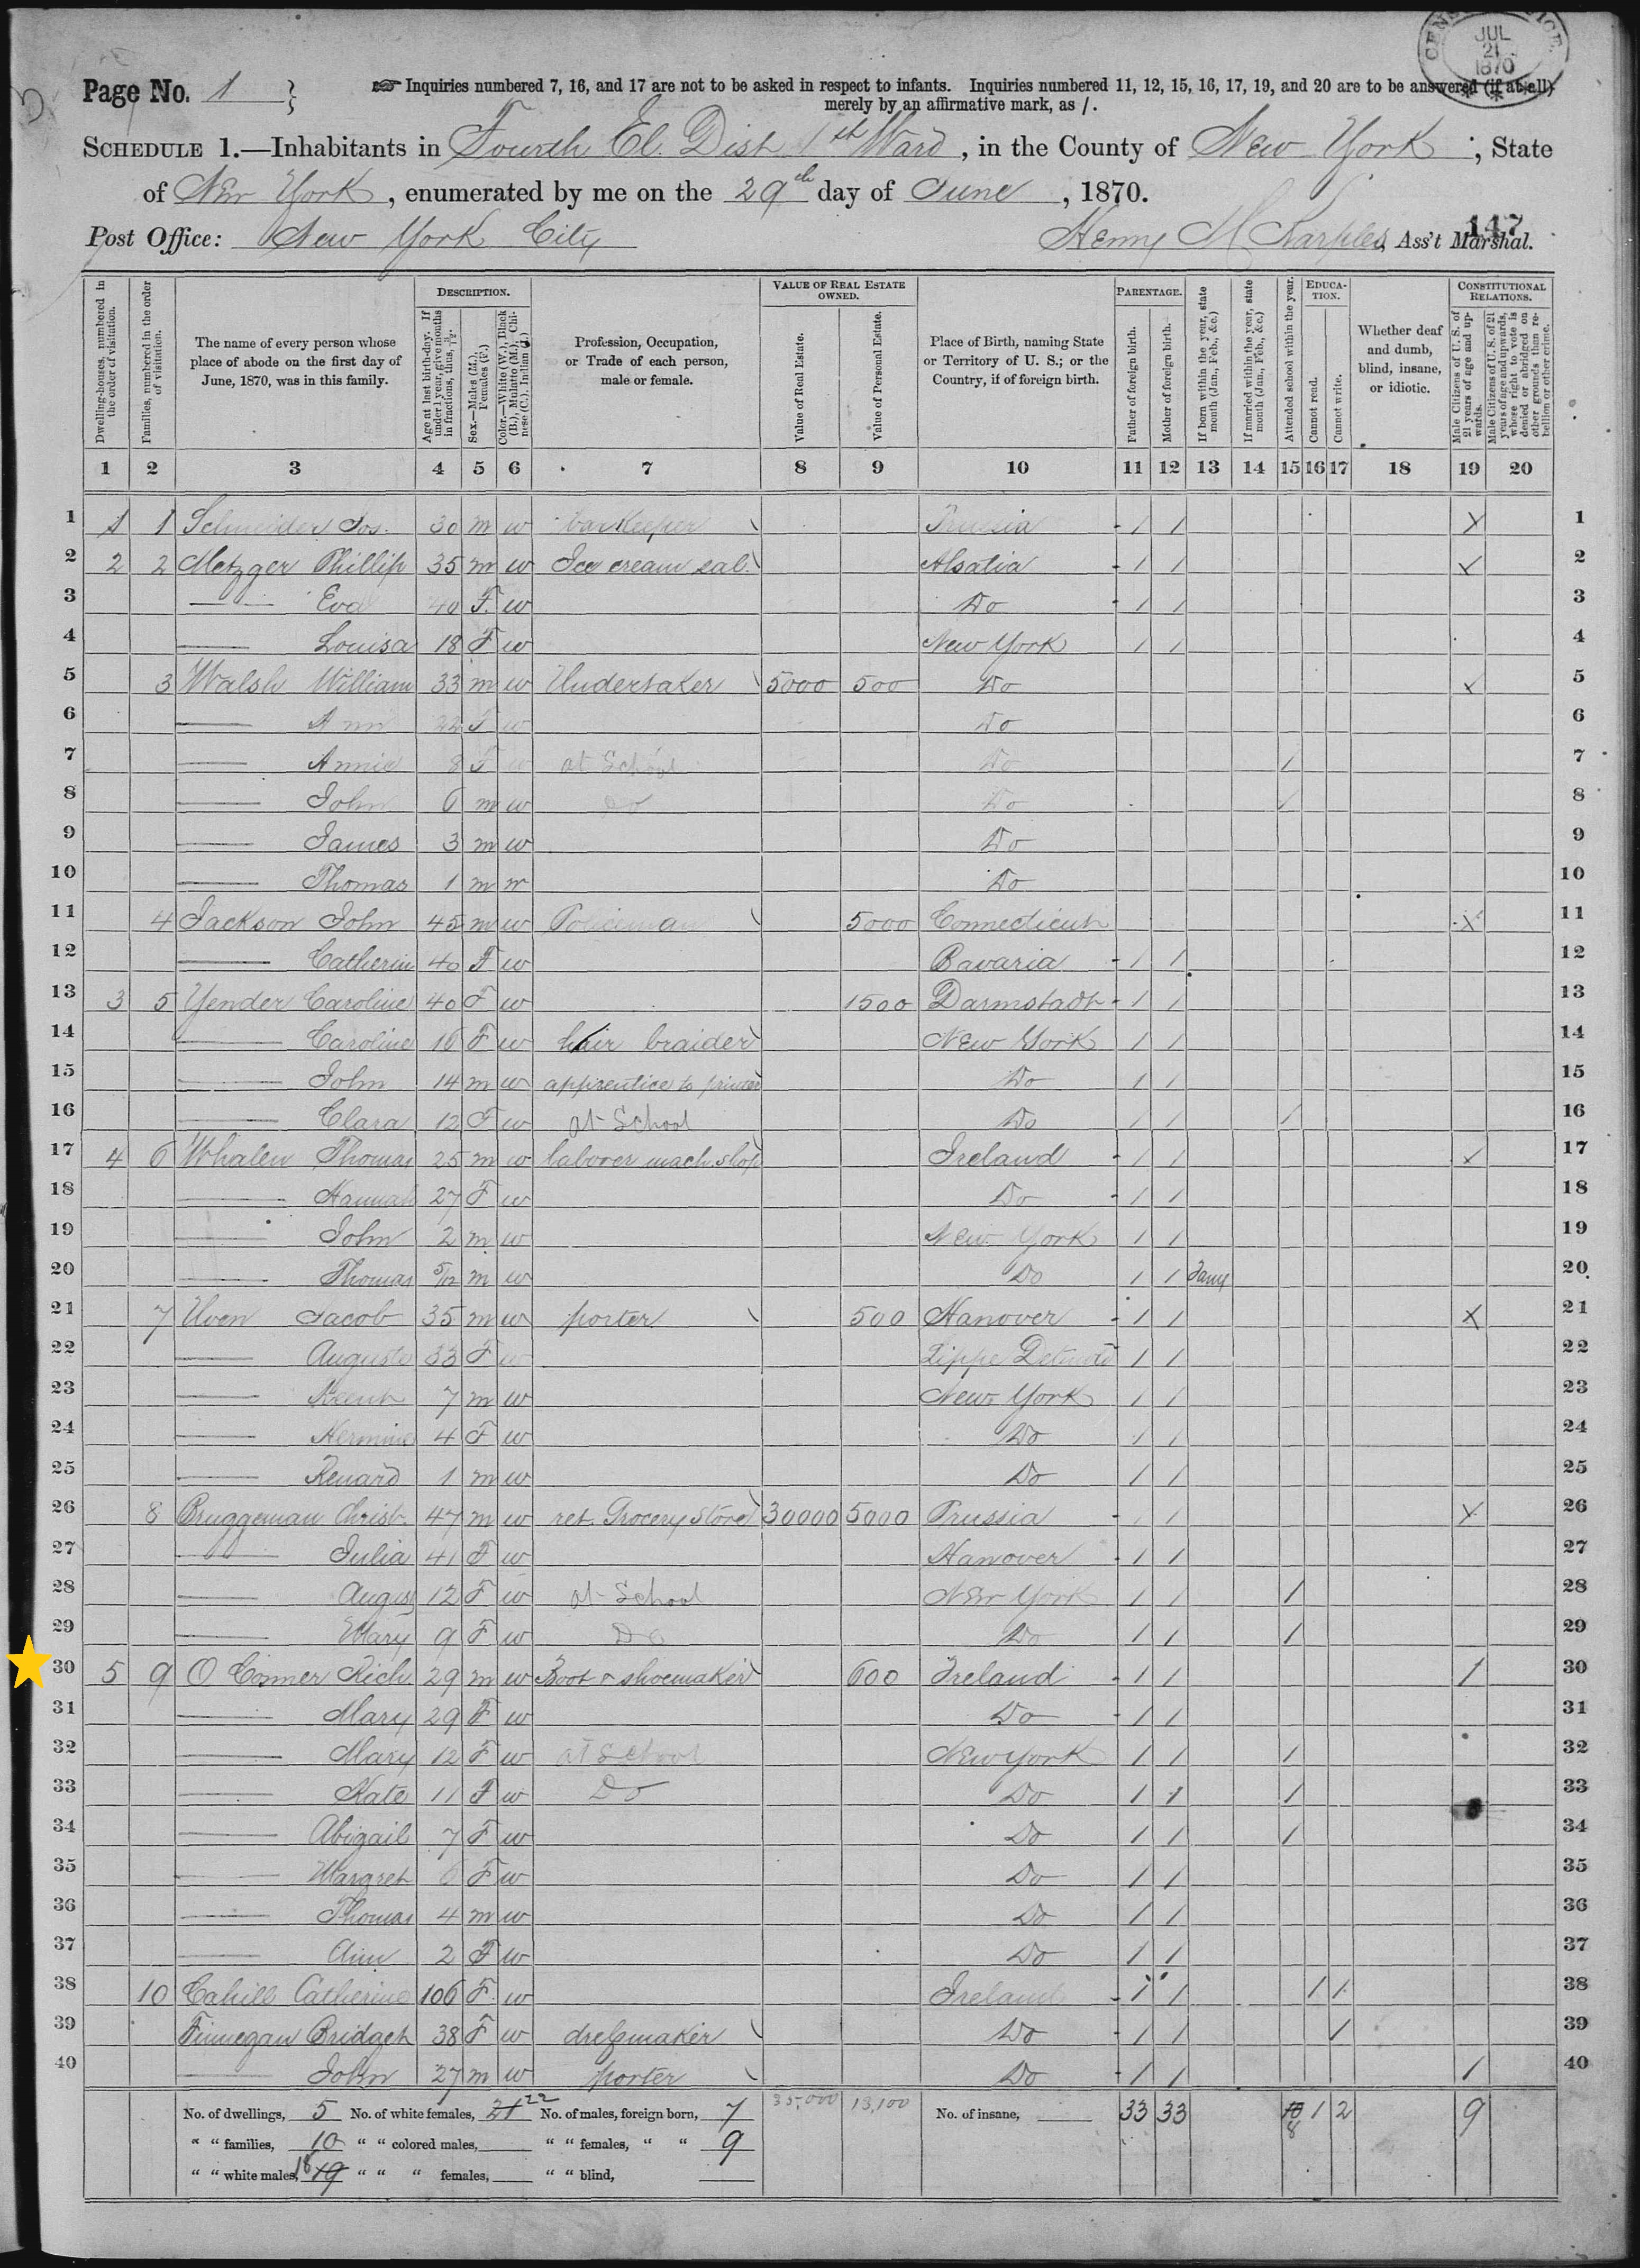 CENSUS OFFICE. JUL 21 1870
Page No. 1
Inquiries numbered 7, 16, and 17 are not to be asked in respect to infants. Inquiries numbered 11, 12, 15, 16, 17, 19, and 20 are to be answered (if at all)
merely by an affirmative mark, as /.
SCHEDULE 1.—Inhabitants in Fourth El. Dist 1th Ward, in the County of New York, State
of New York, enumerated by me on the 29th day of June, 1870.
Post Office: New York City
Henry M Karples, Ass't Marshal.
147
DESCRIPTION. VALUE OF REAL ESTATE OWNED. PARENTAGE. EDUCATION. CONSTITUTIONAL RELATIONS.
Dwelling-houses, numbered in the order of visitation.
Families, numbered in the order of visitation.
The name of every person whose place of abode on the first day of June, 1870, was in this family.
Age at last birth-day. If under 1 year, give months in fractions, thus, 3/12.
Sex.—Males (M.), Females (F.)
Color.—White (W.), Black (B.), Mulatto (M.), Chinese (C.), Indian (I.)
Profession, Occupation, or Trade of each person, male or female.
Value of Real Estate.
Value of Personal Estate.
Place of Birth, naming State or Territory of U. S.; or the Country, if of foreign birth.
Father of foreign birth.
Mother of foreign birth.
If born within the year, state month (Jan., Feb., &c.)
If married within the year, state month (Jan., Feb., &c.)
Attended school within the year.
Cannot read.
Cannot write.
Whether deaf and dumb, blind, insane, or idiotic.
Male Citizens of U. S. of 21 years of age and upwards.
Male Citizens of U. S. of 21 years of age and upwards, whose right to vote is denied or abridged on other grounds than rebellion or other crime.
1 2 3 4 5 6 7 8 9 10 11 12 13 14 15 16 17 18 19 20
1 1 1 Schneider Jos. 30 m w barkeeper Prussia / / X 1
2 2 2 Metzger Phillip 35 m w Ice cream sal. Alsatia / / X 2
3 Eva 40 F w Do / / 3
4 Louisa 18 F w New York / / 4
5 3 Walsh William 33 m w Undertaker 5000 500 Do X 5
6 Ann 22 F w Do 6
7 Annie 8 F w at School Do / 7
8 John 6 m w Do Do / 8
9 James 3 m w Do 9
10 Thomas 1 m w Do 10
11 4 Jackson John 45 m w Policeman 5000 Connecticut X 11
12 Catherin 40 F w Bavaria / / 12
13 3 5 Yender Caroline 40 F w 1500 Darmstadt / / 13
14 Caroline 16 F w hair braider New York / / 14
15 John 14 m w apprentice to printer Do / / 15
16 Clara 12 F w at School Do / / / 16
17 4 6 Whalen Thomas 25 m w laborer mach. shop Ireland / / X 17
18 Hannah 27 F w Do / / 18
19 John 2 m w New York / / 19
20 Thomas 5/12 m w Do / / Jany 20
21 7 Uven Jacob 35 m w porter 500 Hanover / / X 21
22 Auguste 33 F w Lippe Detmold / / 22
23 7 m w New York / / 23
24 Hermine 4 F w Do / / 24
25 Renard 1 m w Do / / 25
26 8 Bruggeman Christ. 47 m w ret. Grocery Store 30000 5000 Prussia / / X 26
27 Julia 41 F w Hanover / / 27
28 August 12 F w at School New York / / / 28
29 Mary 9 F w Do Do / / / 29
30 5 9 O Conner Rich. 29 m w Boot & shoemaker 600 Ireland / / / 30
31 Mary 29 F w Do / / 31
32 Mary 12 F w at School New York / / / 32
33 Kate 11 F w Do Do / / / 33
34 Abigail 7 F w Do / / / 34
35 Margret 6 F w Do / / 35
36 Thomas 4 m w Do / / 36
37 Ann 2 F w Do / / 37
38 10 Cahill Catherine 106 F w Ireland / / / / 38
39 Finnegan Bridget 38 F w dressmaker Do / / / 39
40 John 27 m w porter Do / / / 40
No. of dwellings, 5 No. of white females, 21 22 No. of males, foreign born, 7 35,000 13,100 No. of insane, 33 33 10 8 1 2 9
" " families, 10 " " colored males, " " females, " " 9
" " white males, 18 19 " " " females, " " blind,